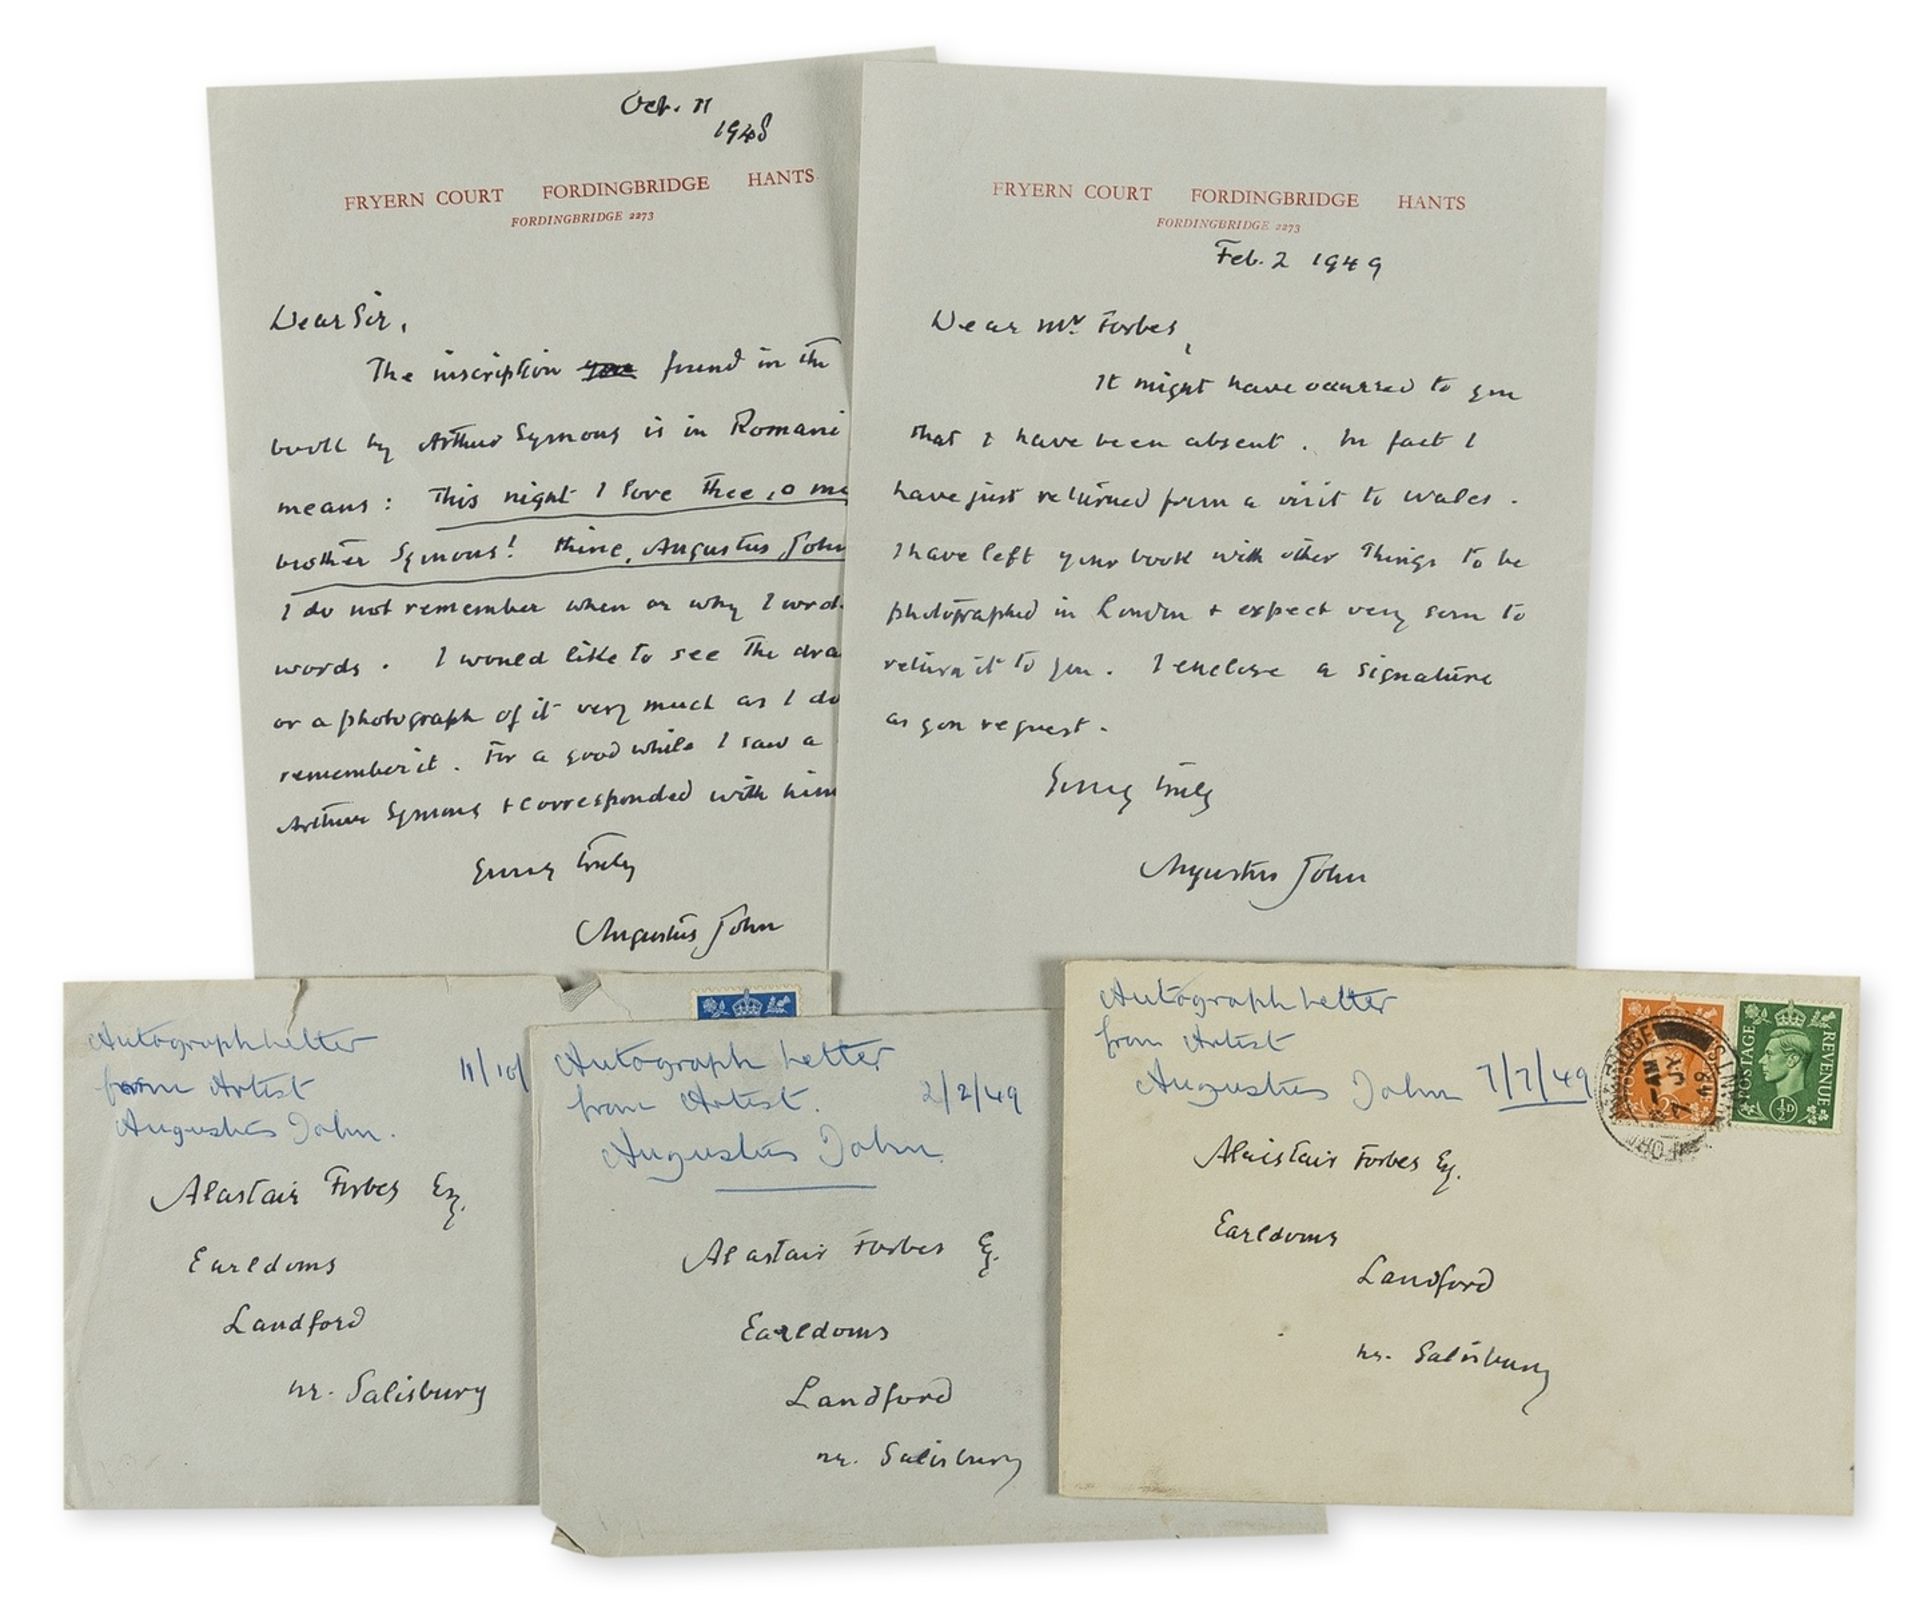 Oct. 11
1948
FRYERN COURT FORDINGBRIDGE HANTS
FORDINGBRIDGE 2273
Dear Sir,
The inscription you found in the
book by Arthur Symons is in Romani
means: This night I love thee, o my
brother Symons! thine, Augustus John
I do not remember when or why I
words. I would like to see the dra
or a photograph of it very much as I do
remember it. For a good while I saw a
Arthur Symons & corresponded with him
Yours truly
Augustus John
FRYERN COURT FORDINGBRIDGE HANTS
FORDINGBRIDGE 2273
Feb. 2 1949
Dear Mr. Forbes,
It might have occurred to you
that I have been absent. In fact I
have just returned from a visit to Wales.
I have left your book with other things to be
photographed in London & expect very soon to
return it to you. I enclose a signature
as you request.
Yours truly
Augustus John
Autograph Letter
from Artist
Augustus John.
11/10/
Alastair Forbes Esq.
Earldoms
Landford
nr. Salisbury
Autograph Letter
from Artist.
2/2/49
Augustus John.
Alastair Forbes Esq.
Earldoms
Landford
nr. Salisbury
Autograph Letter
from Artist
Augustus John 7/7/49
Alaistair Forbes Esq.
Earldoms
Landford
nr. Salisbury
POSTAGE REVENUE
½D